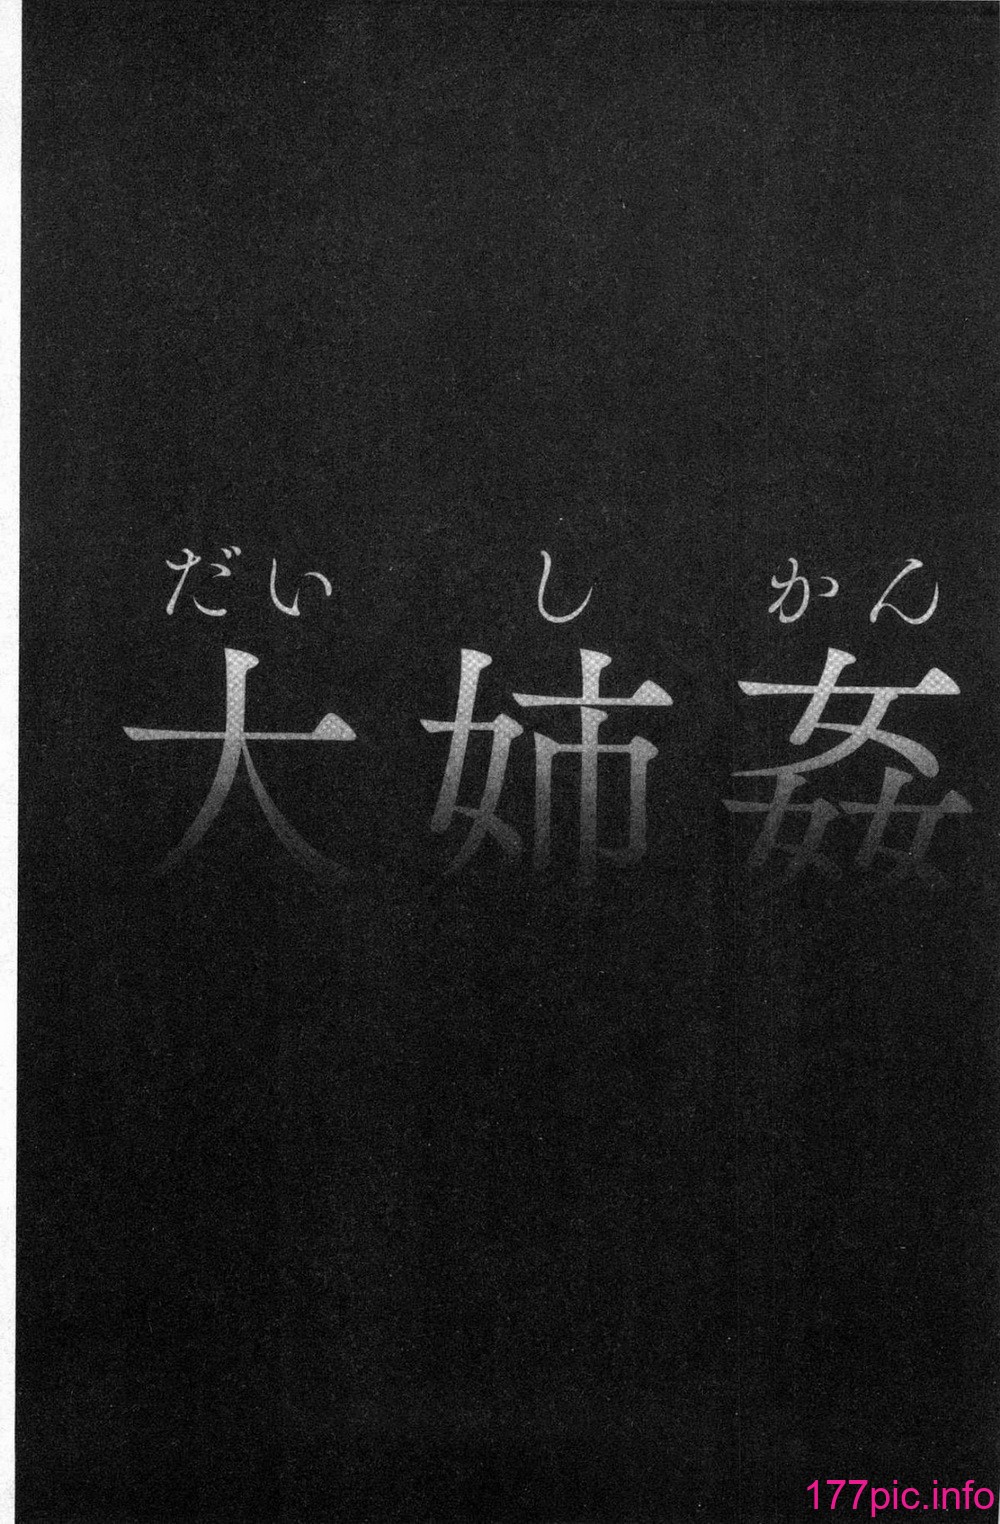 だいしかん
大姉姦
177pic.info